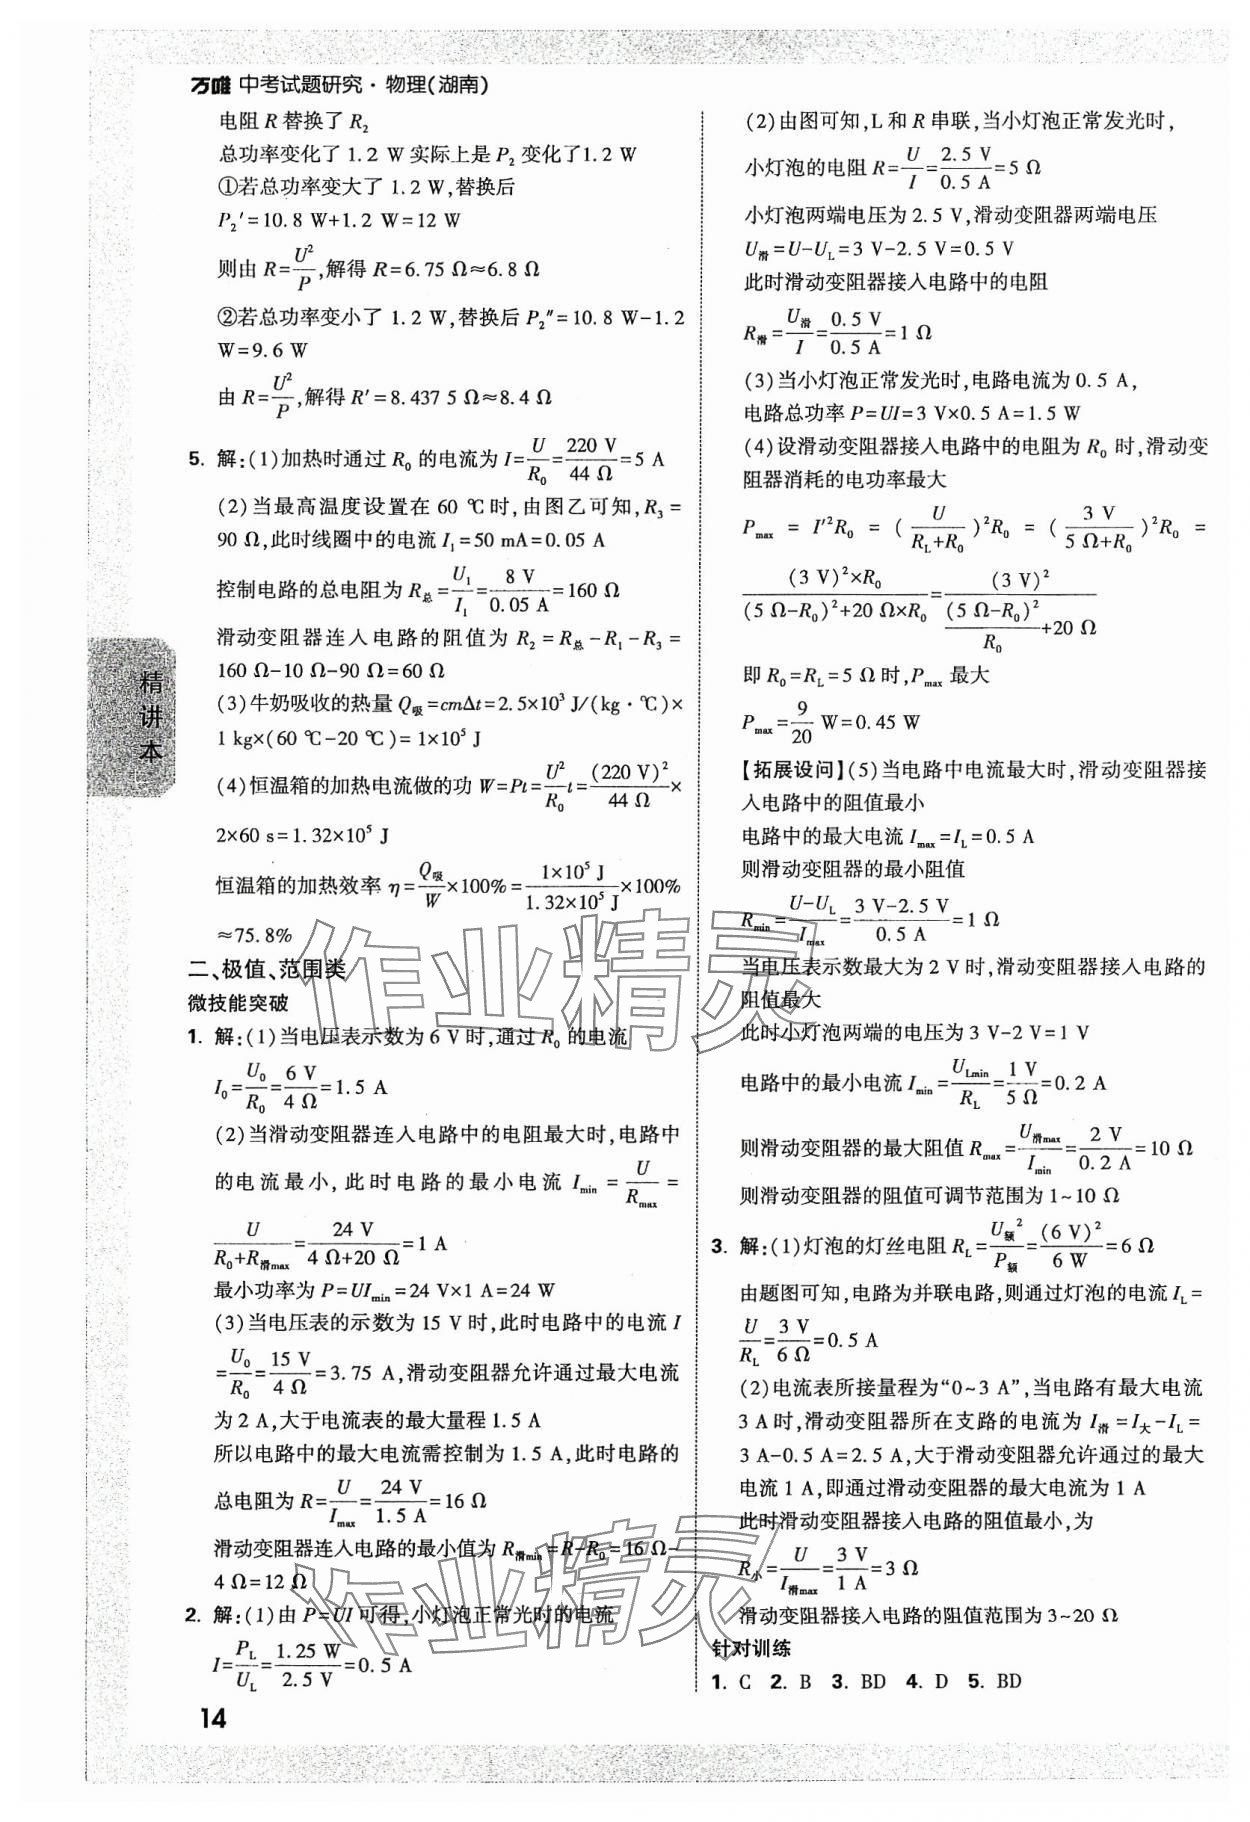 万唯 中考试题研究·物理(湖南)
电阻 R 替换了 R₂
总功率变化了 1.2 W 实际上是 P₂ 变化了1.2 W
①若总功率变大了 1.2 W,替换后
P₂′=10.8 W+1.2 W=12 W
则由 R=U²/P,解得 R=6.75 Ω≈6.8 Ω
②若总功率变小了 1.2 W,替换后 P₂″=10.8 W-1.2
W=9.6 W
由 R=U²/P,解得 R′=8.437 5 Ω≈8.4 Ω
5. 解:(1)加热时通过 R₀ 的电流为 I=U/R₀=220 V/44 Ω=5 A
(2)当最高温度设置在 60 ℃时,由图乙可知,R₃=
90 Ω,此时线圈中的电流 I₁=50 mA=0.05 A
控制电路的总电阻为 R总=U₁/I₁=8 V/0.05 A=160 Ω
滑动变阻器连入电路的阻值为 R₂=R总-R₁-R₃=
160 Ω-10 Ω-90 Ω=60 Ω
(3)牛奶吸收的热量 Q吸=cmΔt=2.5×10³ J/(kg·℃)×
1 kg×(60 ℃-20 ℃)=1×10⁵ J
(4)恒温箱的加热电流做的功 W=Pt=U²/R₀ t=(220 V)²/44 Ω×
2×60 s=1.32×10⁵ J
恒温箱的加热效率 η=Q吸/W×100%=1×10⁵ J/1.32×10⁵ J×100%
≈75.8%
二、极值、范围类
微技能突破
1. 解:(1)当电压表示数为 6 V 时,通过 R₀ 的电流
I₀=U₀/R₀=6 V/4 Ω=1.5 A
(2)当滑动变阻器连入电路中的电阻最大时,电路中
的电流最小,此时电路的最小电流 Imin=U/Rmax=
U/(R₀+R滑max)=24 V/(4 Ω+20 Ω)=1 A
最小功率为 P=UImin=24 V×1 A=24 W
(3)当电压表的示数为 15 V 时,此时电路中的电流 I
=U₀/R₀=15 V/4 Ω=3.75 A,滑动变阻器允许通过最大电流
为 2 A,大于电流表的最大量程 1.5 A
所以电路中的最大电流需控制为 1.5 A,此时电路的
总电阻为 R=U/Imax=24 V/1.5 A=16 Ω
滑动变阻器连入电路的最小值为 R滑min=R-R₀=16 Ω-
4 Ω=12 Ω
2. 解:(1)由 P=UI 可得,小灯泡正常光时的电流
I=PL/UL=1.25 W/2.5 V=0.5 A
(2)由图可知,L 和 R 串联,当小灯泡正常发光时,
小灯泡的电阻 R=U/I=2.5 V/0.5 A=5 Ω
小灯泡两端电压为 2.5 V,滑动变阻器两端电压
U滑=U-UL=3 V-2.5 V=0.5 V
此时滑动变阻器接入电路中的电阻
R滑=U滑/I=0.5 V/0.5 A=1 Ω
(3)当小灯泡正常发光时,电路电流为 0.5 A,
电路总功率 P=UI=3 V×0.5 A=1.5 W
(4)设滑动变阻器接入电路中的电阻为 R₀ 时,滑动变
阻器消耗的电功率最大
Pmax=I′²R₀=(U/(RL+R₀))²R₀=(3 V/(5 Ω+R₀))²R₀=
(3 V)²×R₀/((5 Ω-R₀)²+20 Ω×R₀)=(3 V)²/((5 Ω-R₀)²/R₀+20 Ω)
即 R₀=RL=5 Ω 时,Pmax 最大
Pmax=9/20 W=0.45 W
【拓展设问】(5)当电路中电流最大时,滑动变阻器接
入电路中的阻值最小
电路中的最大电流 Imax=IL=0.5 A
则滑动变阻器的最小阻值
Rmin=(U-UL)/Imax=(3 V-2.5 V)/0.5 A=1 Ω
当电压表示数最大为 2 V 时,滑动变阻器接入电路的
阻值最大
此时小灯泡两端的电压为 3 V-2 V=1 V
电路中的最小电流 Imin=ULmin/RL=1 V/5 Ω=0.2 A
则滑动变阻器的最大阻值 Rmax=U滑max/Imin=2 V/0.2 A=10 Ω
则滑动变阻器的阻值可调节范围为 1~10 Ω
3. 解:(1)灯泡的灯丝电阻 RL=U额²/P额=(6 V)²/6 W=6 Ω
由题图可知,电路为并联电路,则通过灯泡的电流 IL=
U/RL=3 V/6 Ω=0.5 A
(2)电流表所接量程为“0~3 A”,当电路有最大电流
3 A 时,滑动变阻器所在支路的电流为 I滑=I大-IL=
3 A-0.5 A=2.5 A,大于滑动变阻器允许通过的最大
电流 1 A,即通过滑动变阻器的最大电流为 1 A
此时滑动变阻器接入电路的阻值最小,为
R小=U/I滑max=3 V/1 A=3 Ω
滑动变阻器接入电路的阻值范围为 3~20 Ω
针对训练
1. C 2. B 3. BD 4. D 5. BD
精讲本
14
作业精灵
作业精灵